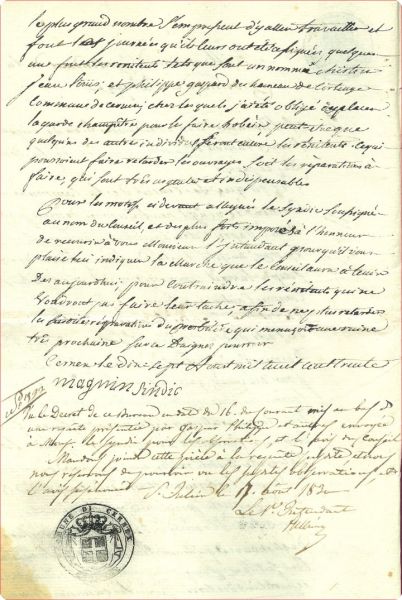 le plus grand nombre s'empressent d'y aller travailler et
font les journées qu'ils leurs ont été
font les rénitents tels que sont un nommé christin
jean Louis, et philippe gaspard du hameau de
Commune de cernex, chez lesquels j'ai été obligé de placer
la garde champêtre pour le faire obéir, peut être que
quelques uns des autres individus feront encore les rénitents ce qui
pourroient faire retarder les ouvrages soit les réparations à
faire, qui sont très urgentes et indispensables
Pour les motifs ci devant allegués le Syndic soussigné
au nom du Conseil, et des plus forts imposés à l'honneur
de recourir à vous Monsieur l'Intendant pour qu'il vous
plaise lui indiquer la Marche que le Conseil aura à tenir
Des aujourd'hui pour Contraindre les rénitents qui ne
Voudront pas faire leur tache, afin de ne plus retarder
les réparations du presbitère qui menace une ruine
très prochaine sur ce Daignez pourvoir
Cernex le dix sept Aout mil huit cent trente
Magnin Sindic
Vu le Decret de ce Bureau en date du 16. du courant mis au bas d'
une requête présentée par Gaspard Philippe et autres envoyée
à Monsr. le Syndic pour les et l'avis du Conseil
Mandons joindre cette pièce à la requête
nous reservons de pourvoir vu les observations
l'avis
St. Julien le 17. aout 1830
Le Pr. Intendant
COMMUNE DE CERNEX